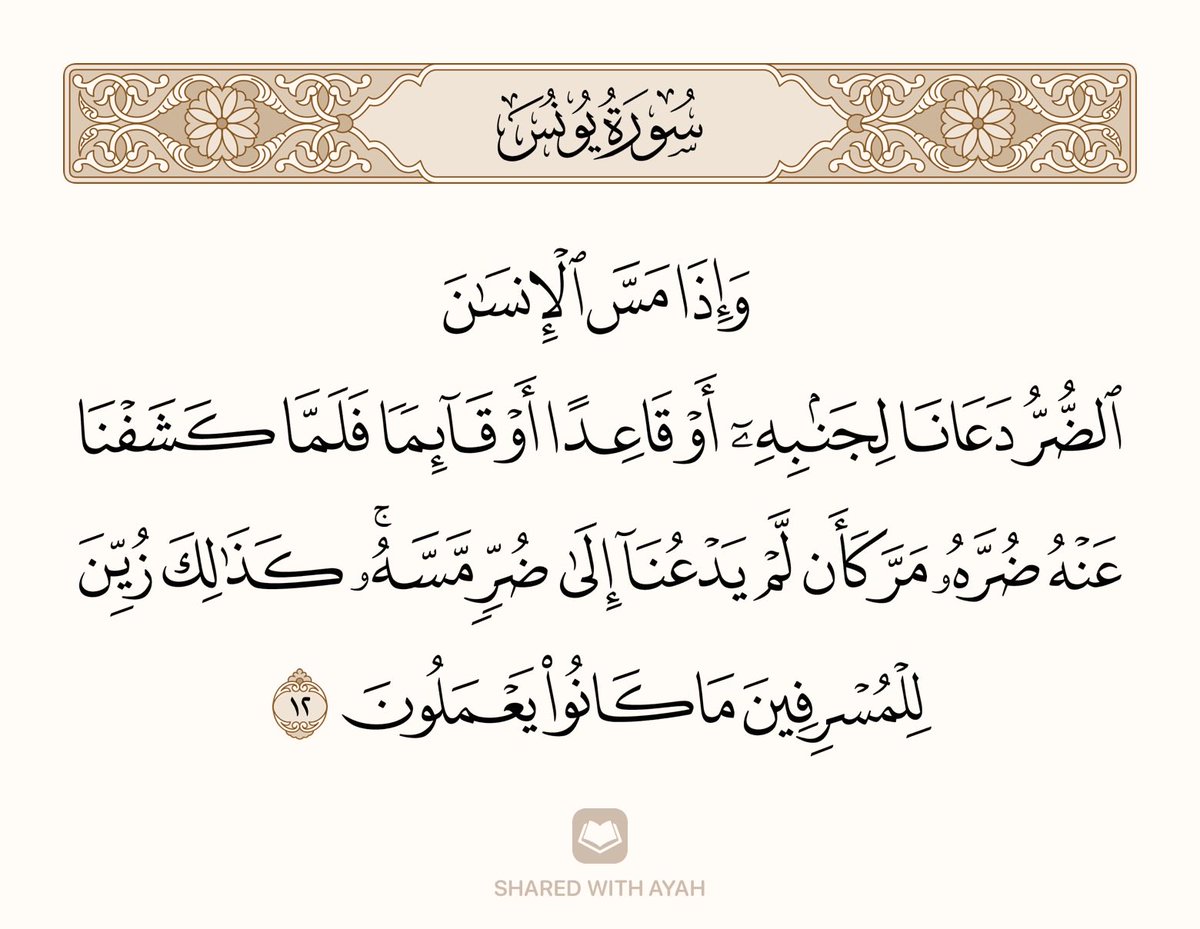 سُورَةُ يُونُسَ
وَإِذَا مَسَّ ٱلۡإِنسَٰنَ
ٱلضُّرُّ دَعَانَا لِجَنۢبِهِۦٓ أَوۡ قَاعِدًا أَوۡ قَآئِمٗا فَلَمَّا كَشَفۡنَا
عَنۡهُ ضُرَّهُۥ مَرَّ كَأَن لَّمۡ يَدۡعُنَآ إِلَىٰ ضُرّٖ مَّسَّهُۥۚ كَذَٰلِكَ زُيِّنَ
لِلۡمُسۡرِفِينَ مَا كَانُواْ يَعۡمَلُونَ ١٢
SHARED WITH AYAH